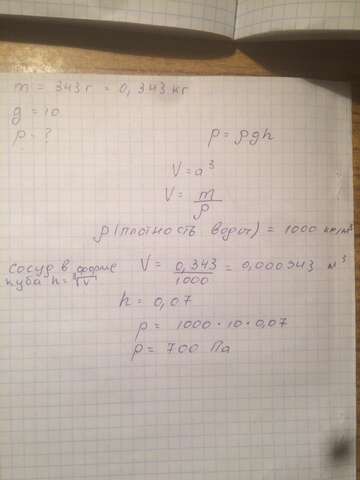 m = 343 г = 0,343 кг
g = 10
p = ?
p = ρgh
V = a³
V = m/ρ
ρ (плотность воды) = 1000 кг/м³
сосуд в форме куба h = ∛V
V = 0,343/1000 = 0,000343 м³
h = 0,07
p = 1000 · 10 · 0,07
p = 700 Па